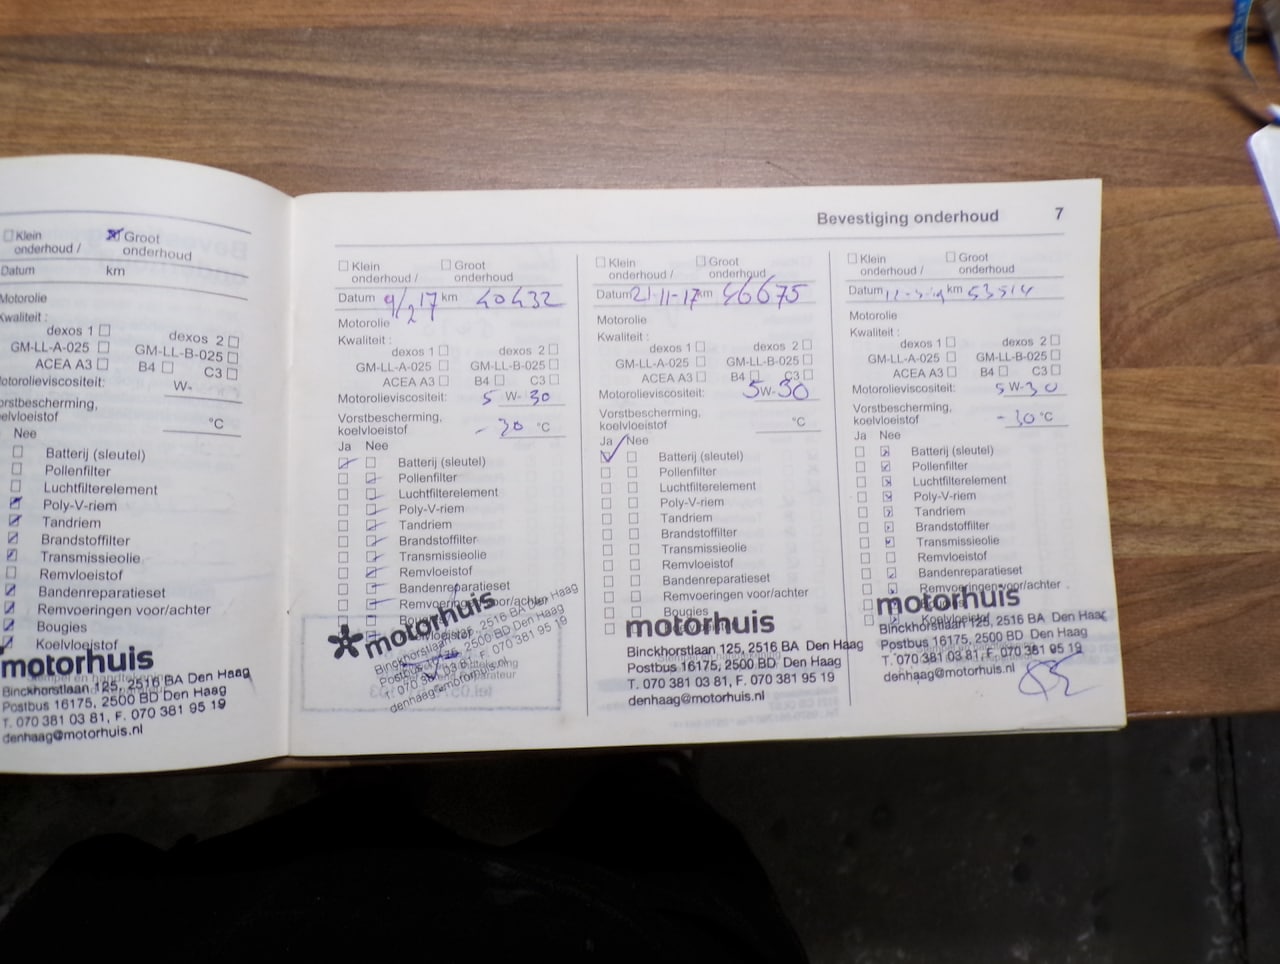 Bevestiging onderhoud 7
Klein onderhoud / Groot onderhoud
Datum km
Motorolie
Kwaliteit :
dexos 1 dexos 2
GM-LL-A-025 GM-LL-B-025
ACEA A3 B4 C3
Motorolieviscositeit: W-
Vorstbescherming,
koelvloeistof °C
Nee
Batterij (sleutel)
Pollenfilter
Luchtfilterelement
Poly-V-riem
Tandriem
Brandstoffilter
Transmissieolie
Remvloeistof
Bandenreparatieset
Remvoeringen voor/achter
Bougies
Koelvloeistof
motorhuis
Binckhorstlaan 125, 2516 BA Den Haag
Postbus 16175, 2500 BD Den Haag
T. 070 381 03 81, F. 070 381 95 19
denhaag@motorhuis.nl
Klein
onderhoud /
Groot
onderhoud
Datum 9/2 17 km 40432
Motorolie
Kwaliteit :
dexos 1 dexos 2
GM-LL-A-025 GM-LL-B-025
ACEA A3 B4 C3
Motorolieviscositeit: 5 W- 30
Vorstbescherming,
koelvloeistof - 30 °C
Ja Nee
Batterij (sleutel)
Pollenfilter
Luchtfilterelement
Poly-V-riem
Tandriem
Brandstoffilter
Transmissieolie
Remvloeistof
Bandenreparatieset
Remvoeringen voor/achter
motorhuis
Binckhorstlaan 125, 2516 BA Den Haag
Postbus 16175, 2500 BD Den Haag
T. 070 381 03 81, F. 070 381 95 19
denhaag@motorhuis.nl
Klein
onderhoud /
Groot
onderhoud
Datum 21-11-17 km 46675
Motorolie
Kwaliteit :
dexos 1 dexos 2
GM-LL-A-025 GM-LL-B-025
ACEA A3 B4 C3
Motorolieviscositeit: 5W-30
Vorstbescherming,
koelvloeistof °C
Ja Nee
Batterij (sleutel)
Pollenfilter
Luchtfilterelement
Poly-V-riem
Tandriem
Brandstoffilter
Transmissieolie
Remvloeistof
Bandenreparatieset
Remvoeringen voor/achter
Bougies
motorhuis
Binckhorstlaan 125, 2516 BA Den Haag
Postbus 16175, 2500 BD Den Haag
T. 070 381 03 81, F. 070 381 95 19
denhaag@motorhuis.nl
Klein
onderhoud /
Groot
onderhoud
Datum km 53514
Motorolie
Kwaliteit :
dexos 1 dexos 2
GM-LL-A-025 GM-LL-B-025
ACEA A3 B4 C3
Motorolieviscositeit: 5 W-30
Vorstbescherming,
koelvloeistof - 30 °C
Ja Nee
Batterij (sleutel)
Pollenfilter
Luchtfilterelement
Poly-V-riem
Tandriem
Brandstoffilter
Transmissieolie
Remvloeistof
Bandenreparatieset
Remvoeringen voor/achter
Koelvloeistof
motorhuis
Binckhorstlaan 125, 2516 BA Den Haag
Postbus 16175, 2500 BD Den Haag
T. 070 381 03 81, F. 070 381 95 19
denhaag@motorhuis.nl